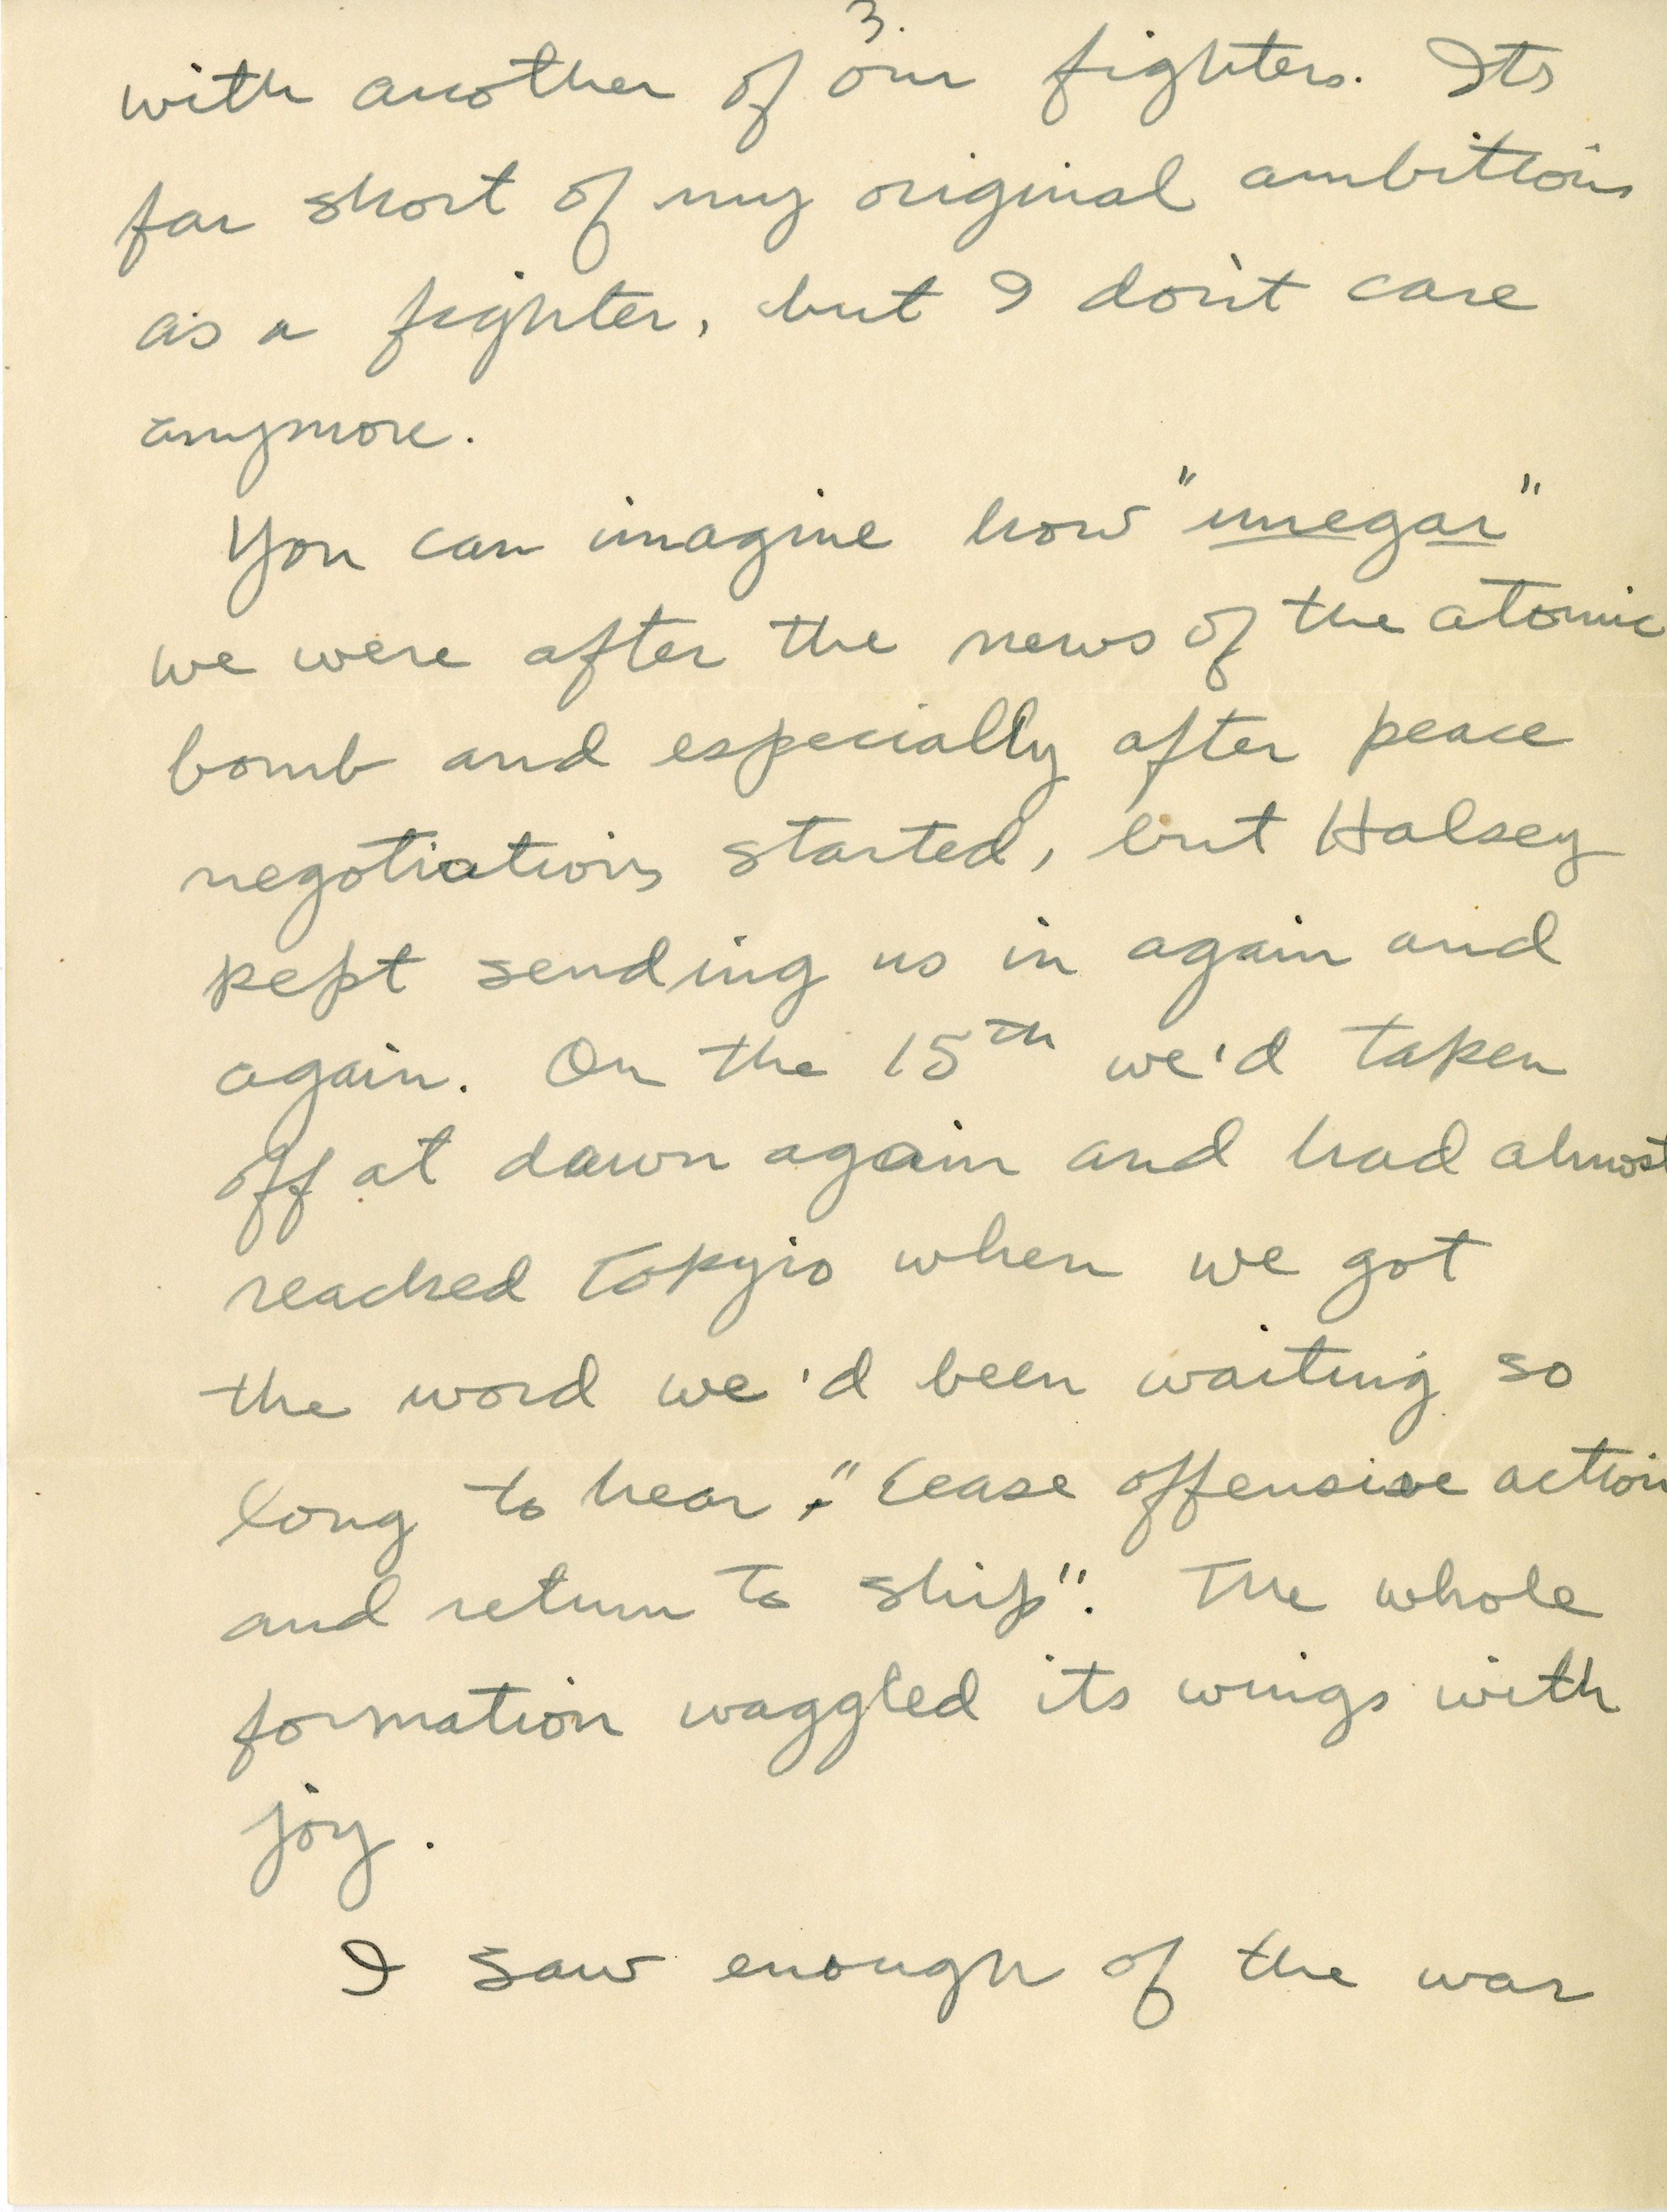 3.
with another of our fighters. Its
far short of my original ambitions
as a fighter, but I don't care
anymore.
You can imagine how "uneager"
we were after the news of the atomic
bomb and especially after peace
negotiations started, but Halsey
kept sending us in again and
again. On the 15th we'd taken
off at dawn again and had almost
reached Tokyio when we got
the word we'd been waiting so
long to hear: "Cease offensive action
and return to ship". The whole
formation waggled its wings with
joy.
I saw enough of the war